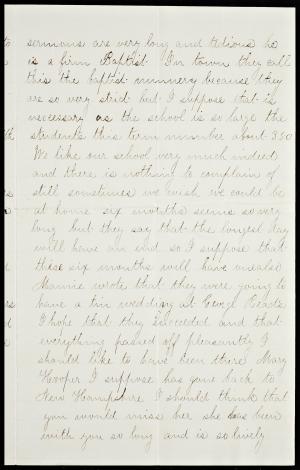 sermons are very long and tedious he
is a firm Baptist. In town they call
this the baptist nunnery because they
are so very strict but I suppose that is
necessary as the school is so large the
students this term number about 350
We like our school very much indeed
and there is nothing to complain of
still sometimes we wish we could be
at home six months seems so very
long but they say that the longest day
will have an end so I suppose that
these six months will have an also.
Mamie wrote that they were going to
have a tin wedding at George
I hope that they succeeded and that
everything passed off pleasantly I
should like to have been there Mary
Hooper I suppose has gone back to
New Hampshire I should think that
you would miss her she has been
with you so long and is so lively